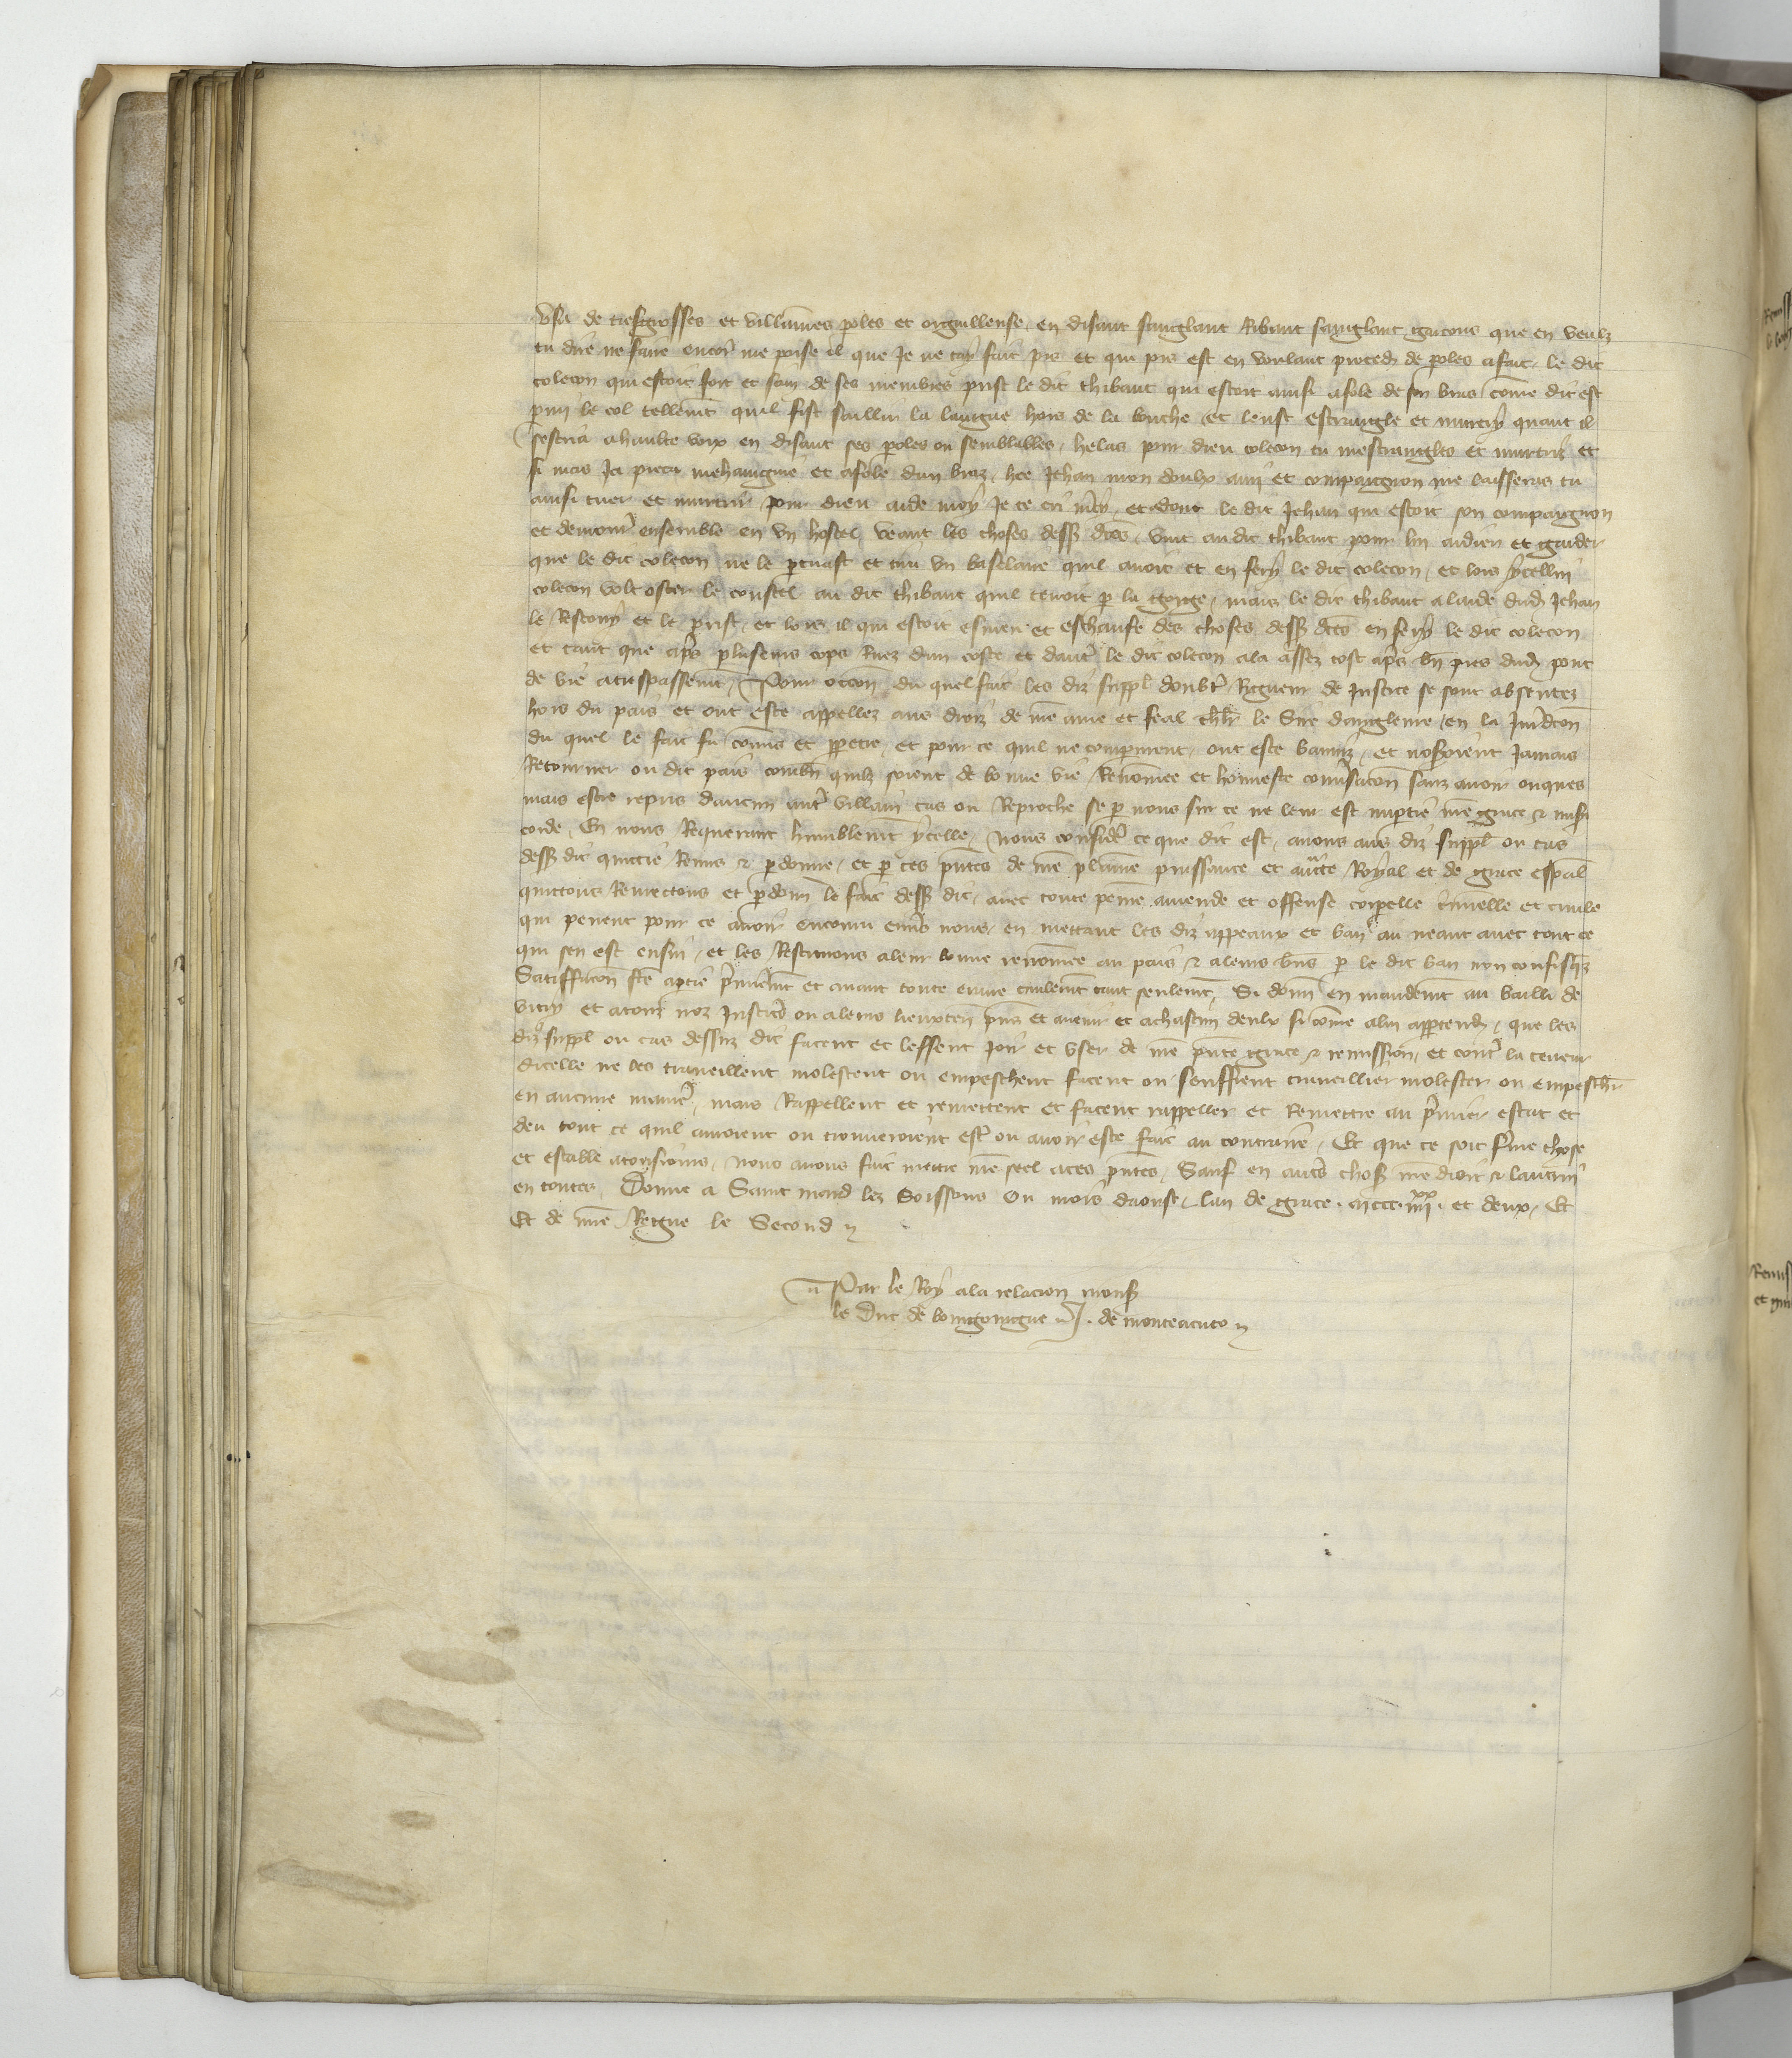 usa de tresgrosses et villaines poles et orguilleuse en disant sanglant Ribaut sanglant garcons que en veulz
tu dire ne faire encor me poise il que Je ne tay fait pis et qui pis est en voulant proced de poles a fait le dit
colecon qui estoit fort et sain de ses membres prist le dit thibaut qui estoit ainsi afole de son bras come dit est
pmi le col tellemt quil fist saillir la langue hors de la bouche et leust estrangle et murtry quant il
sescria a haulte voix en disant ses poles ou semblables helas pour dieu colecon tu mestrangles et murtriz et
si mas Ja pieca mehaingne et afole dun braz hee Jehan mon doulx ami et compaignon me laisseras tu
ainsi tuer et murtrir pour dieu aide moy Je te cri mcy et donc le dit Jehan qui estoit son compaignon
et demour ensemble en un hostel veant les choses dess dces vint au dit thibaut pour lui aidier et garder
que le dit colecon ne le partuast et tira un baselaire quil avoit et en fery le dit colecon et lors ycellui
colecon volt oster le coustel au dit thibaut quil tenoit p la gorge mais le dit thibaut a laide dud Jehan
le Rescouy et le prist et lors il qui estoit esmeu et eschaufe des choses dess dces en fery le dit colecon
et tant que aps pluseurs cops Ruez dun coste et daut le dit colecon ala assez tost aps bn pres dud pont
de vie a trespassemt Pour occon du quel fait les diz suppl doubt Rigueur de Justice se sont absentez
hors du pais et ont este appellez aus droiz de nre ame et feal chlr le Sire dangleure en la Juridcon
du quel le fait fu comis et ppetre et pour ce quil ne comparurent ont este baniz et noseroient Jamais
Retourner ou dit pais combn quilz soient de bonne vie Renomee et honneste conversacon sanz avoir onques
mais este repris daucun aut villain cas ou Reproche se p nous sur ce ne leur est impartie nre grace & misi
corde En nous Requerant humblemt ycelle Nous consider ce que dit est avons aus diz suppl ou cas
dess dit quictie Remis & pdonne et p ces pntes de nre plaine puissance et aucte Royal et de grace espal
quictons Remectons et pdonn le fait dess dit avec toute peine amende et offense corpelle criminelle et civile
qui pevent pour ce avoir encouru envs nous en mettant les diz appeaux et ban au neant avec tout ce
qui sen est ensui et les Restituons a leur bonne renomee au pais & a leurs bns p le dit ban non confisqz
Satisffacon fte a ptie premieremt et avant toute euvre civilemt tant seulemt Si donn en mandemt au bailli de
vitry et a touz noz Justic ou a leurs lieuxten pns et avenir et a chascun deulx si come a lui apptend que les
diz suppl ou cas dessuz dit facent et lessent Joir et user de nre pnte grace & remission et cont la teneur
dicelle ne les traveillent molestent ou empeschent facent ou seuffrent traveillier molester ou empeschr
en aucune manie mais Rappellent et remettent et facent rappeller et Remettre au premier estat et
deu tout ce quil auroient ou trouveroient est ou avoir este fait au contraire Et que ce soit ferme chose
et estable a tousjours Nous avons fait mettre nre seel a ces pntes Sauf en autres chos nre droit & lautrui
en toutes Donne a Saint mard lez Soissons Ou mois daoust lan de grace mccc iiiixx et deux Et
Et de nre Regne le Second
Par le Roy a la relacion mons
le Duc de bourgoingne J. de monteacuto